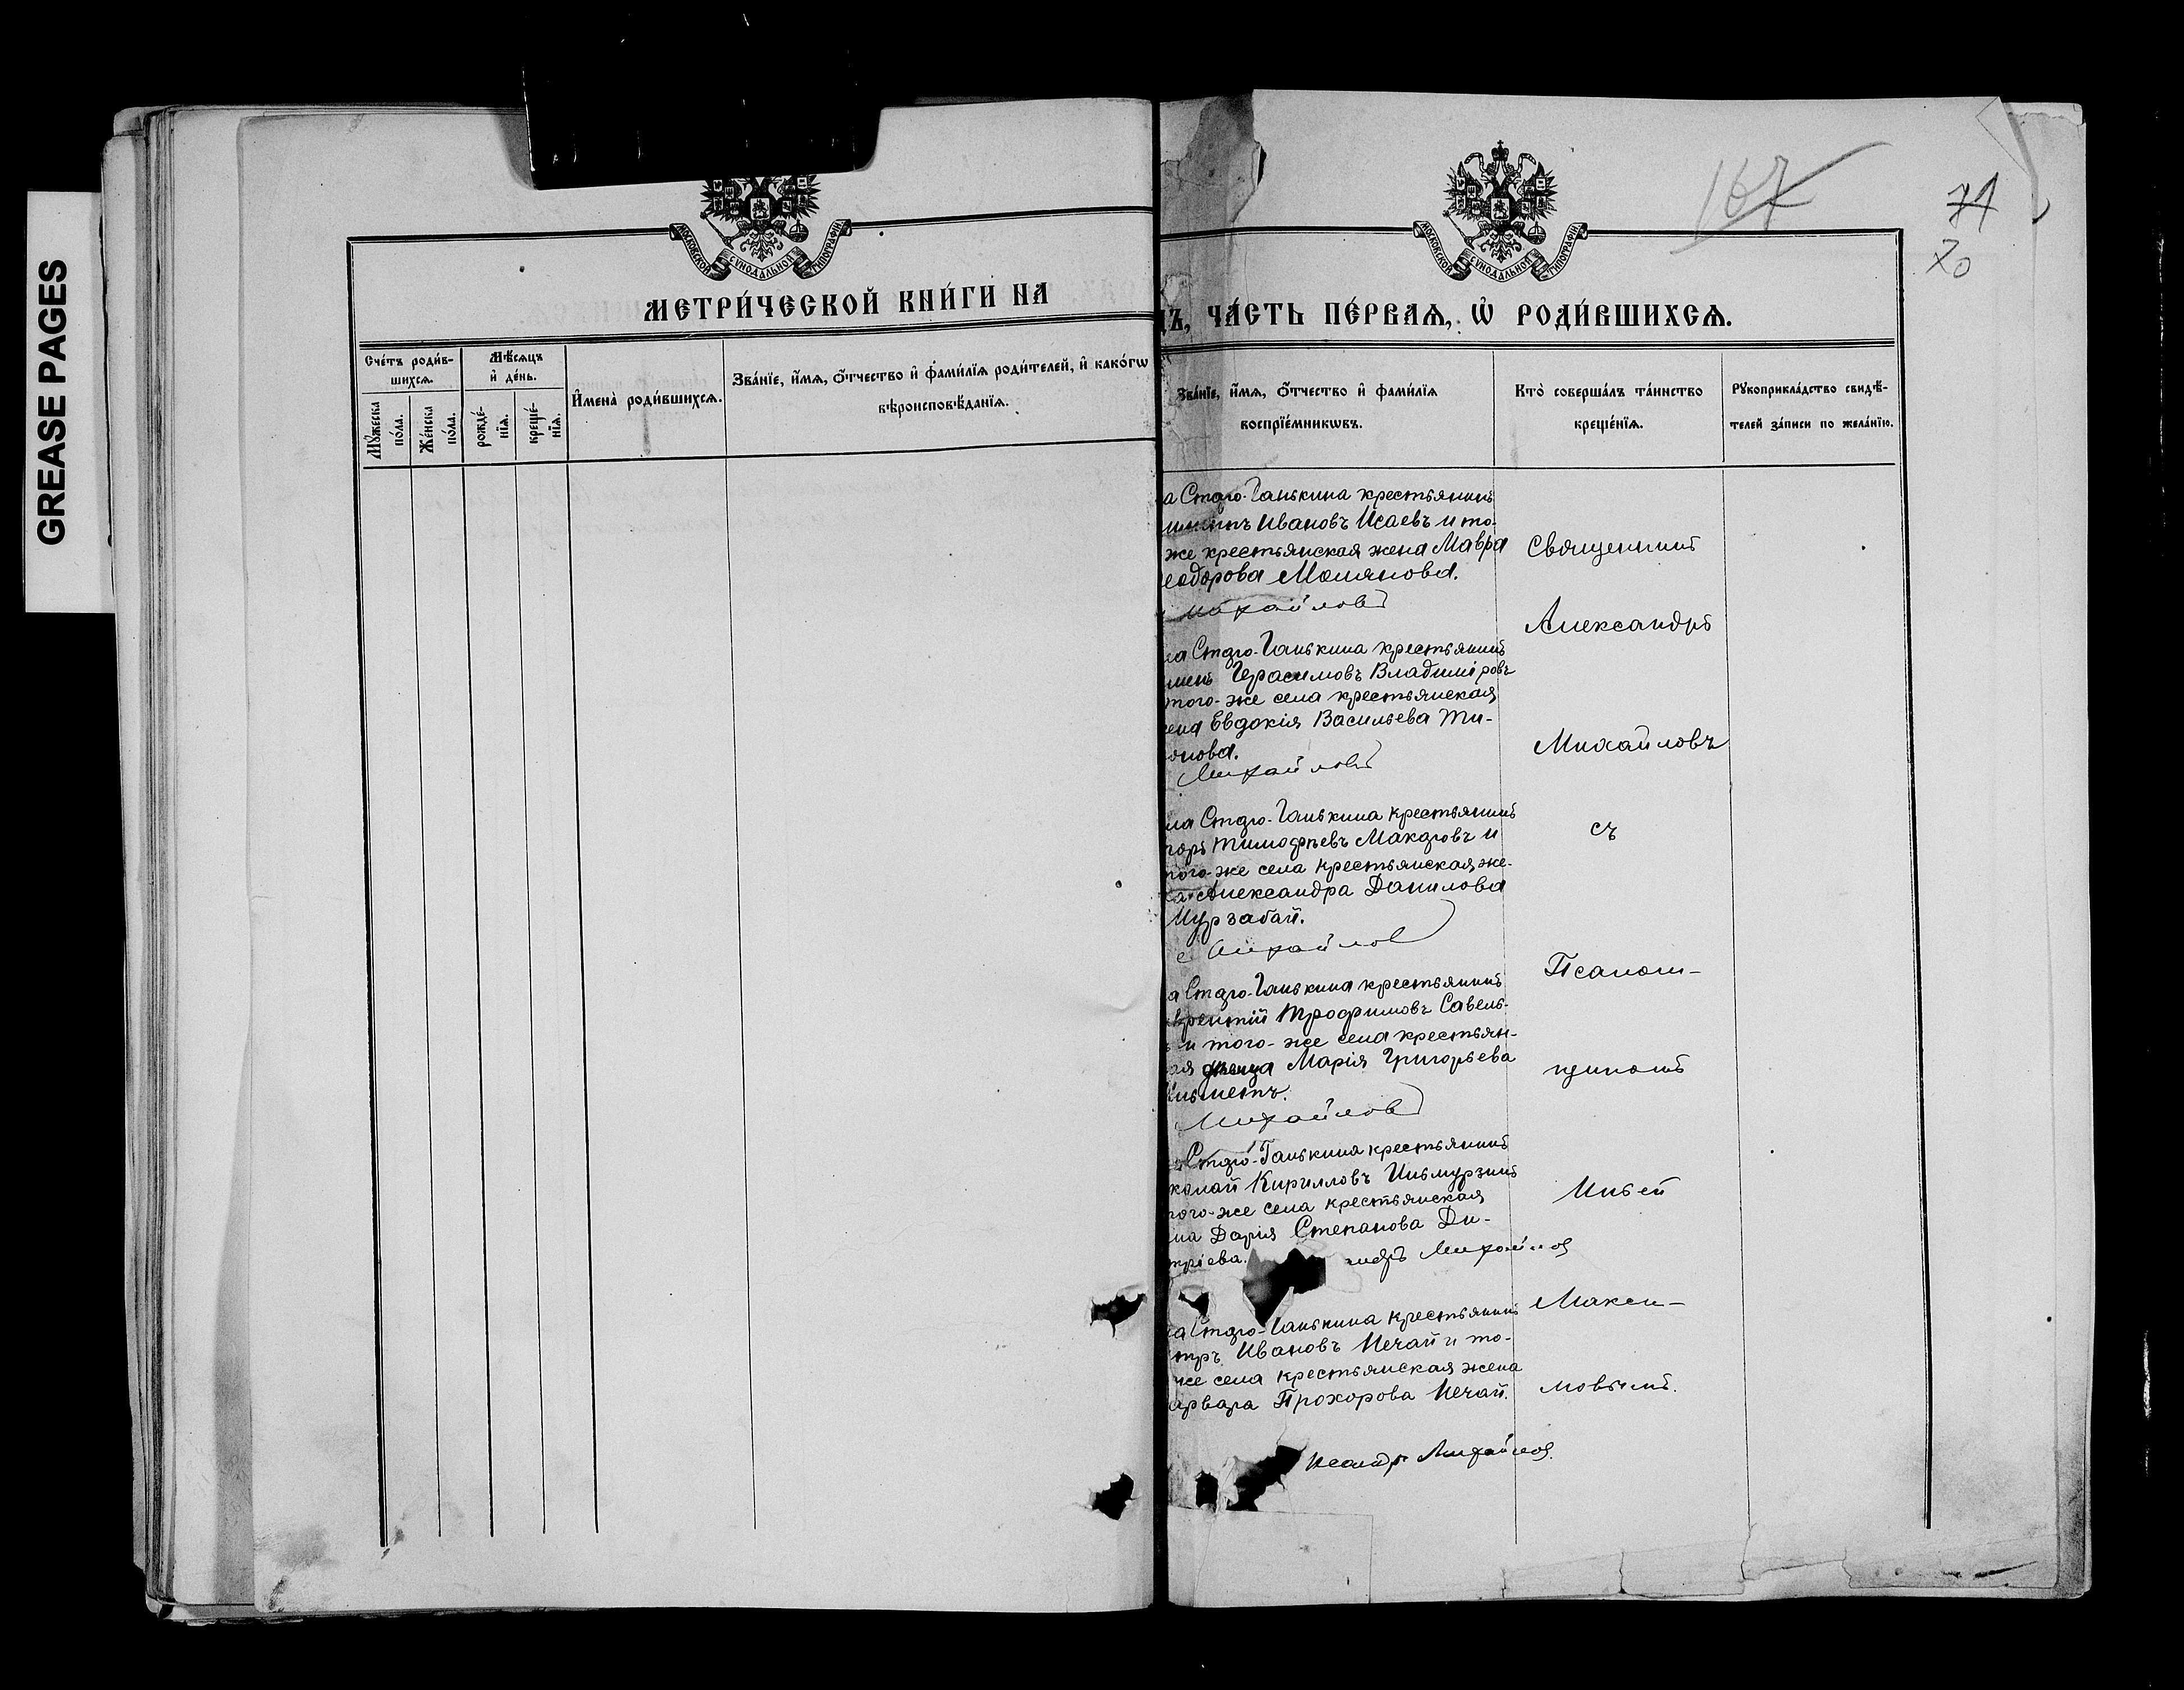 GREASE PAGES
МОСКОВСКОЙ СѴНОДАЛЬНОЙ ТИПОГРАФІИ
МЕТРИ́ЧЕСКОЙ КНИ́ГИ НА
Сче́тъ роди́в-
шихсѧ.
Мѣ́сѧцъ
и҆ де́нь.
Мꙋ́жеска
по́ла.
Же́нска
по́ла.
рожде́-
нїѧ.
креще́-
нїѧ.
И҆мена̀ роди́вшихсѧ.
Зва́нїе, и҆́мѧ, ѻ҆́тчество и҆ фами́лїѧ роди́телей, и҆ како́гѡ
вѣроисповѣ́данїѧ.
167
71
70
МОСКОВСКОЙ СѴНОДАЛЬНОЙ ТИПОГРАФІИ
ДЪ, ЧА́СТЬ ПЕ́РВАѦ, Ѡ҆ РОДИ́ВШИХСѦ.
Зва́нїе, и҆́мѧ, ѻ҆́тчество и҆ фами́лїѧ
воспрїе́мникѡвъ.
Кто̀ соверша́лъ та́инство
креще́нїѧ.
Рꙋкоприкла́дство свидѣ́-
телей за́писи по жела́нїю.
а Старо-Ганькина крестьянинъ
Ивановъ Исаевъ и то-
же крестьянская жена Мавра
еодорова Молянова.
Михайловъ
ла Старо-Ганькина крестьянинъ
мень Герасимовъ Владиміровъ
того-же села крестьянская
ена Евдокія Васильева Ти-
онова.
Михайловъ
ла Старо-Ганькина крестьянинъ
горъ Тимофеевъ Макаровъ и
того-же села крестьянская же-
на Александра Данилова
Мурзабай.
Михайлов
а Старо-Ганькина крестьянинъ
врентій Трофимовъ Савель-
ъ и того-же села крестьян-
ая Марія Григорьева
Михайловъ
Старо-Ганькина крестьянинъ
колай Кирилловъ Ильмурзинъ
того-же села крестьянская
на Дарія Степанова Ди-
тріева.
ндръ Михайлов
ла Старо-Ганькина крестьянинъ
тръ Ивановъ Нечай и то-
же села крестьянская жена
арвара Прохорова Нечай.
ксандръ Михайлов.
Священникъ
Александръ
Михайловъ
съ
Псалом-
щикомъ
Ильей
Макси-
мовымъ.